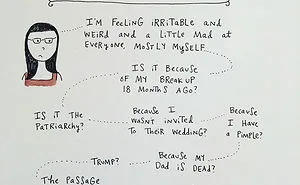 I'M FEELING IRRITABLE AND
WEIRD AND A LITTLE MAD AT
EVERYONE, MOSTLY MYSELF
IS IT BECAUSE
OF MY BREAKUP
18 MONTHS AGO?
IS IT THE
PATRIARCHY?
BECAUSE I
WASNT INVITED
TO THEIR WEDDING?
BECAUSE
I HAVE
A PIMPLE?
TRUMP?
BECAUSE MY
DAD IS DEAD?
THE PASSAGE